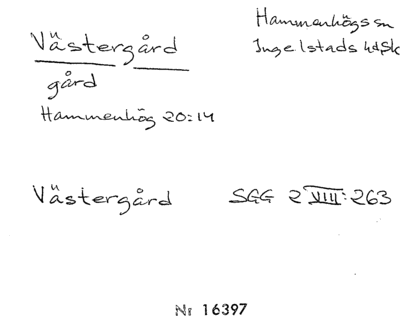 Västergård
Hammenhögs sn
Ingelstads hd Sk
gård
Hammenhög 20:14
Västergård SGG 2 VIII:263
Nr 16397